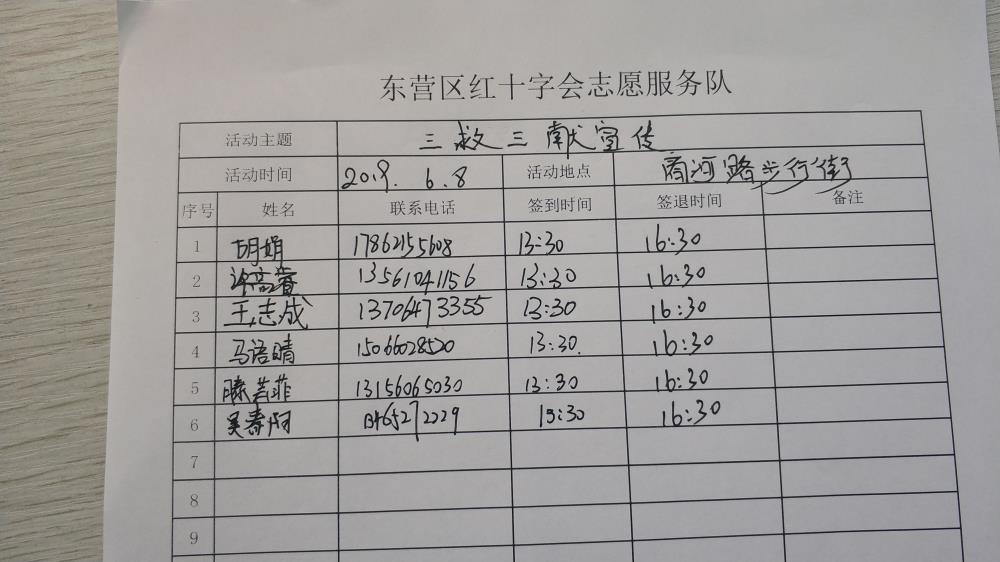 东营区红十字会志愿服务队
活动主题 三救三献宣传
活动时间 2019.6.8 活动地点 商河路步行街
序号 姓名 联系电话 签到时间 签退时间 备注
1 胡娟 17862155608 13:30 16:30
2 许高睿 13561041156 13:30 16:30
3 王志成 13706473355 13:30 16:30
4 马语晴 15066028520 13:30. 16:30
5 滕若菲 13156065030 13:30 16:30
6 吴春 16:30
7
8
9